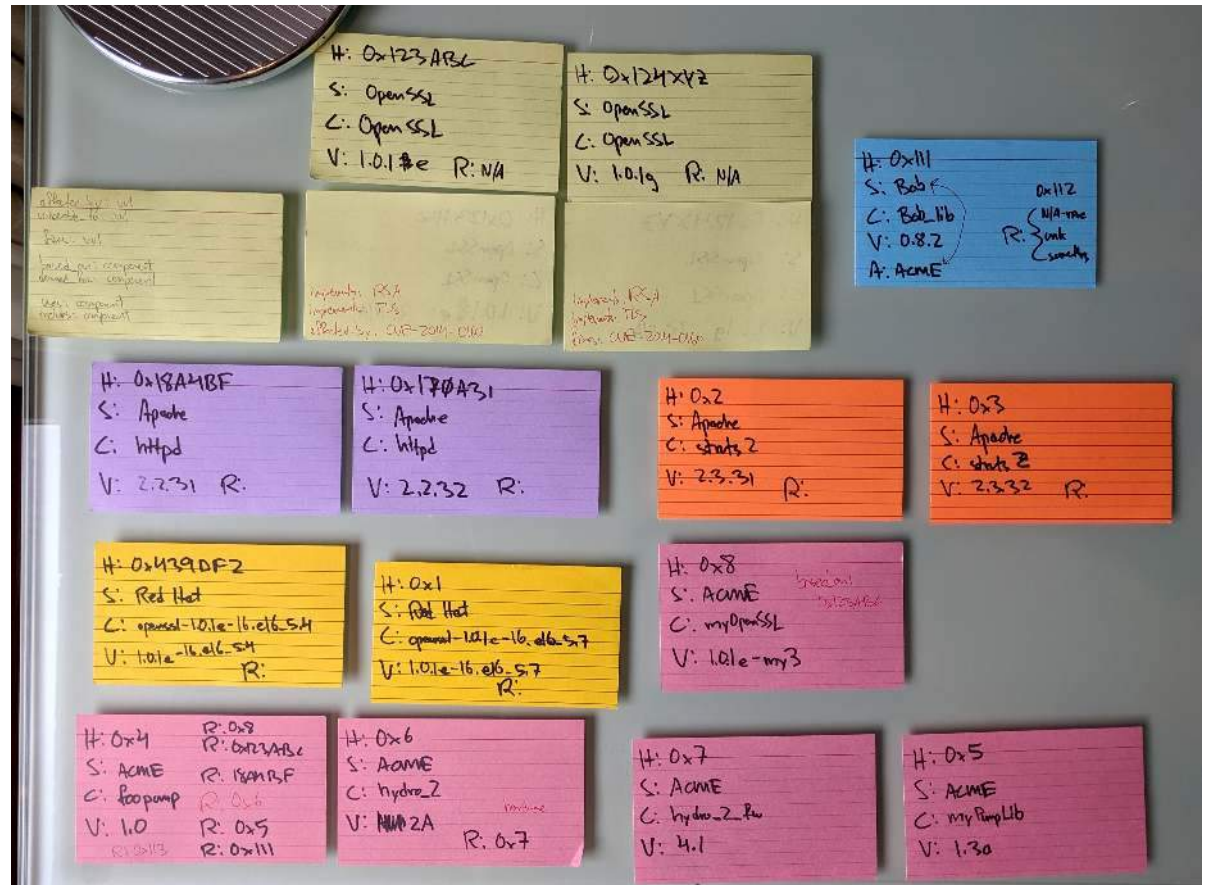 H: 0x123ABC
S: OpenSSL
C: OpenSSL
V: 1.0.1e R: N/A
H: 0x124XYZ
S: OpenSSL
C: OpenSSL
V: 1.0.1g R: N/A
H: 0x111
S: Bob
C: Bob_lib
V: 0.8.2
A: ACME
0x112
R: N/A-none
unk
affected_by: vul
vulnerable_to: vul
fixes: vul
based_on: component
derived_from: component
uses: component
includes: component
implements: RSA
implements: TLS
affected by: CVE-2014-0160
implements: RSA
implements: TLS
fixes: CVE-2014-0160
H: 0x18A4BF
S: Apache
C: httpd
V: 2.2.31 R:
H: 0x170A31
S: Apache
C: httpd
V: 2.2.32 R:
H: 0x2
S: Apache
C: struts 2
V: 2.3.31 R:
H: 0x3
S: Apache
C: struts 2
V: 2.3.32 R:
H: 0x439DF2
S: Red Hat
C: openssl-1.0.1e-16.el6_5.4
V: 1.0.1e-16.el6_5.4
R:
H: 0x1
S: Red Hat
C: openssl-1.0.1e-16.el6_5.7
V: 1.0.1e-16.el6_5.7
R:
H: 0x8
S: ACME
C: myOpenSSL
V: 1.0.1e-my3
based on:
0x123ABC
H: 0x4 R: 0x8
R: 0x123ABC
S: ACME R: 18A4BF
C: foopump R: 0x6
V: 1.0 R: 0x5
R: 0x113 R: 0x111
H: 0x6
S: ACME
C: hydro_2
V: 2A
R: 0x7
H: 0x7
S: ACME
C: hydro_2_fw
V: 4.1
H: 0x5
S: ACME
C: myPumpLib
V: 1.3a